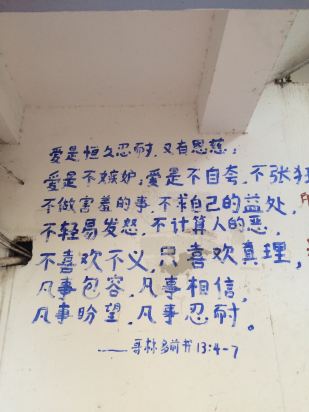 爱是恒久忍耐，又有恩慈；
爱是不嫉妒；爱是不自夸，不张狂
不做害羞的事，不求自己的益处，
不轻易发怒，不计算人的恶，
不喜欢不义，只喜欢真理，
凡事包容，凡事相信，
凡事盼望，凡事忍耐。
——哥林多前书13:4-7